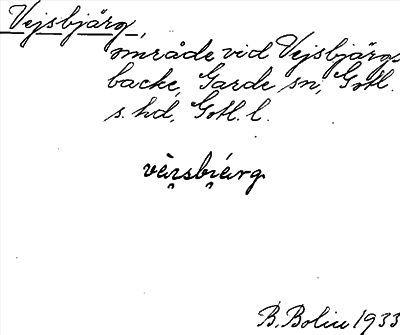 Vejsbjärg,
område vid Vejsbjärgs
backe, Garde sn, Gotl.
s. hd, Gotl. l.
B. Bolin 1933